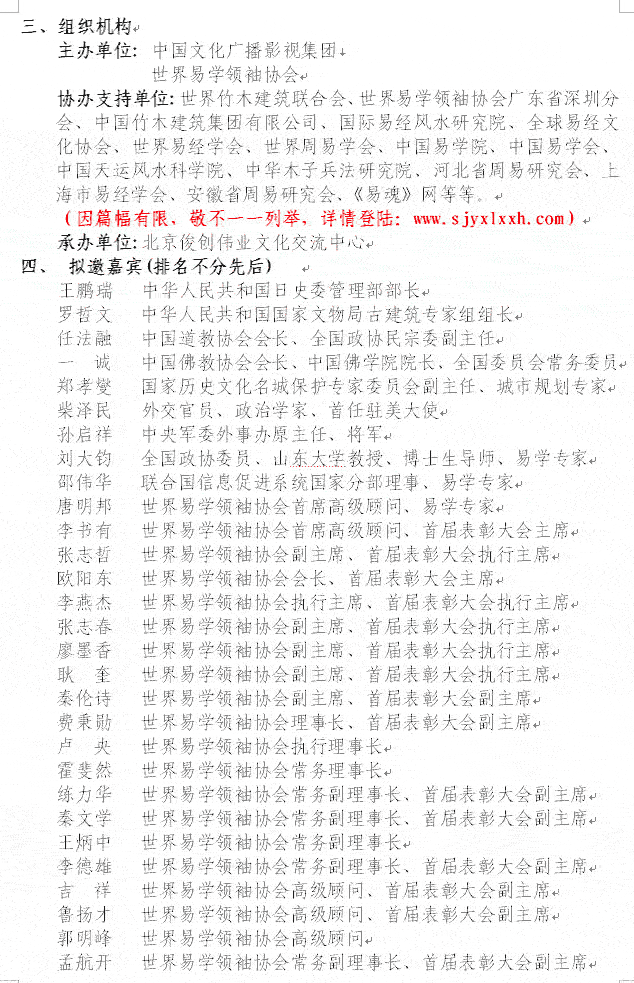 三、组织机构
主办单位: 中国文化广播影视集团
世界易学领袖协会
协办支持单位: 世界竹木建筑联合会、世界易学领袖协会广东省深圳分
会、中国竹木建筑集团有限公司、国际易经风水研究院、全球易经文
化协会、世界易经学会、世界周易学会、中国易学院、中国易学会、
中国天运风水科学院、中华木子兵法研究院、河北省周易研究会、上
海市易经学会、安徽省周易研究会、《易魂》网等等。
(因篇幅有限，敬不一一列举，详情登陆：www.sjyxlxxh.com)
承办单位: 北京俊创伟业文化交流中心
四、 拟邀嘉宾(排名不分先后)
王鹏瑞 中华人民共和国日史委管理部部长
罗哲文 中华人民共和国国家文物局古建筑专家组组长
任法融 中国道教协会会长、全国政协民宗委副主任
一 诚 中国佛教协会会长、中国佛学院院长、全国委员会常务委员
郑孝燮 国家历史文化名城保护专家委员会副主任、城市规划专家
柴泽民 外交官员、政治学家、首任驻美大使
孙启祥 中央军委外事办原主任、将军
刘大钧 全国政协委员、山东大学教授、博士生导师、易学专家
邵伟华 联合国信息促进系统国家分部理事、易学专家
唐明邦 世界易学领袖协会首席高级顾问、易学专家
李书有 世界易学领袖协会首席高级顾问、首届表彰大会主席
张志哲 世界易学领袖协会副主席、首届表彰大会执行主席
欧阳东 世界易学领袖协会会长、首届表彰大会主席
李燕杰 世界易学领袖协会执行主席、首届表彰大会执行主席
张志春 世界易学领袖协会副主席、首届表彰大会执行主席
廖墨香 世界易学领袖协会副主席、首届表彰大会执行主席
耿 奎 世界易学领袖协会副主席、首届表彰大会执行主席
秦伦诗 世界易学领袖协会副主席、首届表彰大会副主席
费秉勋 世界易学领袖协会理事长、首届表彰大会副主席
卢 央 世界易学领袖协会执行理事长
霍斐然 世界易学领袖协会常务理事长
练力华 世界易学领袖协会常务副理事长、首届表彰大会副主席
秦文学 世界易学领袖协会常务副理事长、首届表彰大会副主席
王炳中 世界易学领袖协会常务副理事长
李德雄 世界易学领袖协会常务副理事长、首届表彰大会副主席
吉 祥 世界易学领袖协会高级顾问、首届表彰大会副主席
鲁扬才 世界易学领袖协会高级顾问、首届表彰大会副主席
郭明峰 世界易学领袖协会高级顾问
孟航开 世界易学领袖协会常务副理事长、首届表彰大会副主席